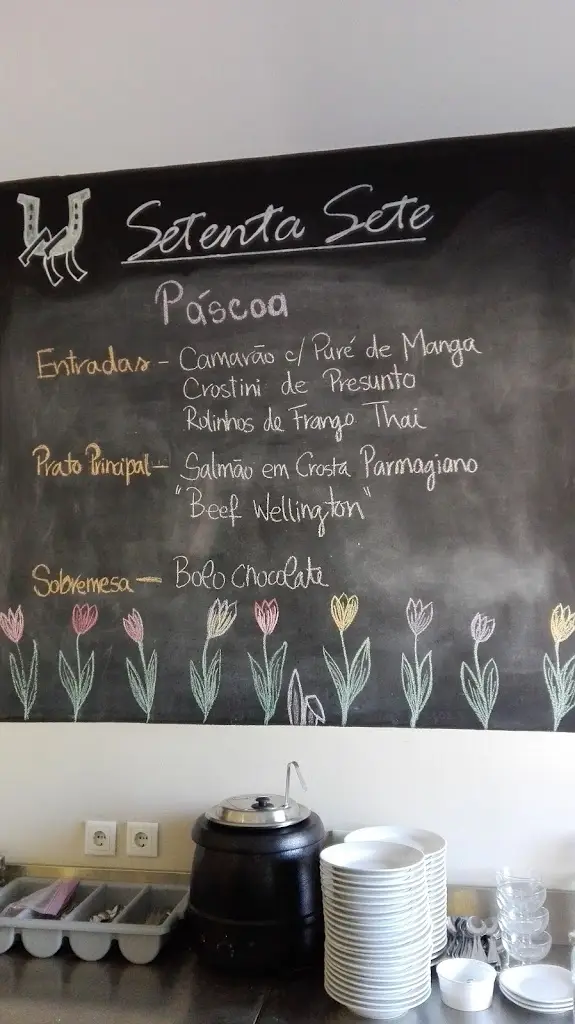 Setenta Sete
Páscoa
Entradas - Camarão c/ Puré de Manga
Crostini de Presunto
Rolinhos de Frango Thai
Prato Principal - Salmão em Crosta Parmagiano
"Beef Wellington"
Sobremesa - Bolo Chocolate